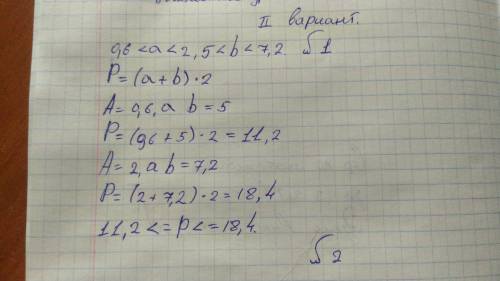 II вариант.
0,6 < a < 2, 5 < b < 7,2. №1
P = (a + b) · 2
A = 0,6, а b = 5
P = (0,6 + 5) · 2 = 11,2
A = 2, а b = 7,2
P = (2 + 7,2) · 2 = 18,4
11,2 < = p < = 18,4.
№2